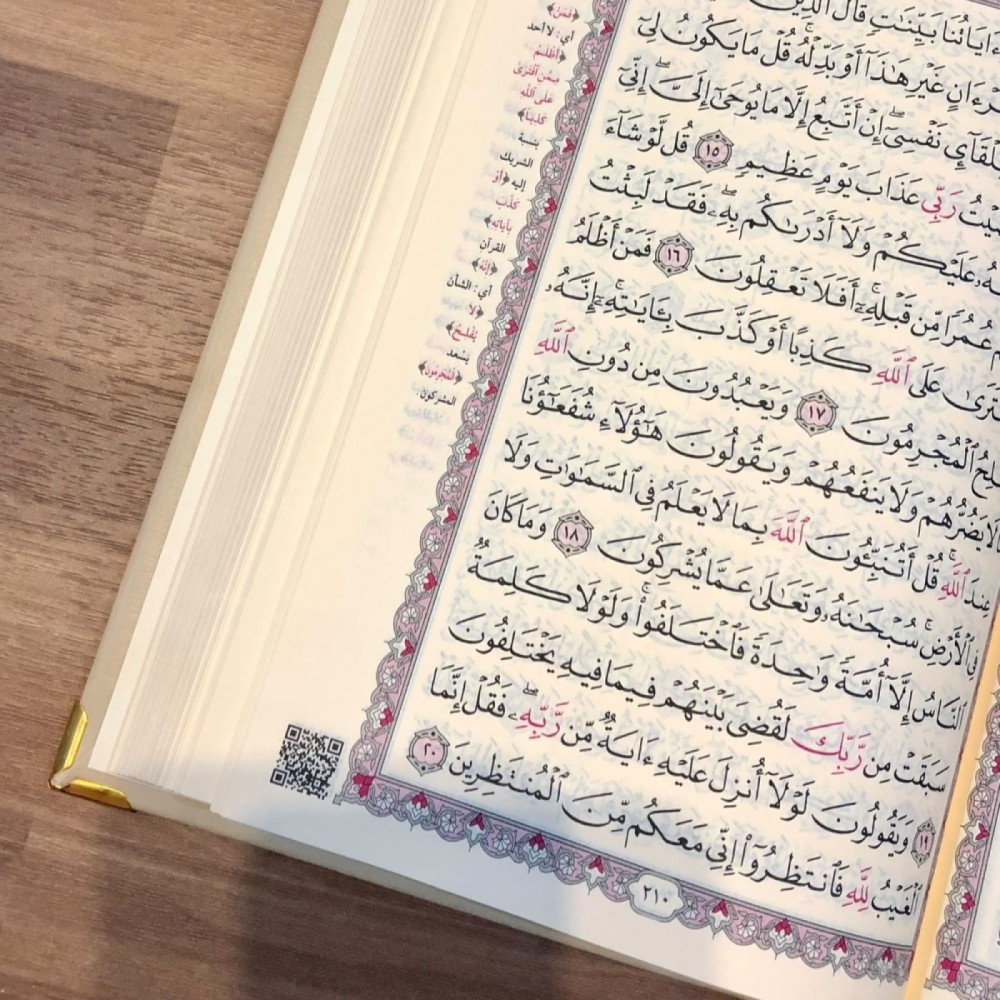 ءَايَاتُنَا بَيِّنَٰتٍ قَالَ ٱلَّذِينَ
غَيْرِ هَٰذَآ أَوْ بَدِّلْهُ قُلْ مَا يَكُونُ لِىٓ
نَفْسِىٓ ۖ إِنْ أَتَّبِعُ إِلَّا مَا يُوحَىٰٓ إِلَىَّ ۖ إِنِّىٓ
رَبِّى عَذَابَ يَوْمٍ عَظِيمٍ ١٥ قُل لَّوْ شَآءَ
عَلَيْكُمْ وَلَآ أَدْرَىٰكُم بِهِۦ ۖ فَقَدْ لَبِثْتُ
عُمُرًا مِّن قَبْلِهِۦٓ ۚ أَفَلَا تَعْقِلُونَ ١٦ فَمَنْ أَظْلَمُ
عَلَى ٱللَّهِ كَذِبًا أَوْ كَذَّبَ بِـَٔايَٰتِهِۦٓ ۚ إِنَّهُۥ
ٱلْمُجْرِمُونَ ١٧ وَيَعْبُدُونَ مِن دُونِ ٱللَّهِ
يَضُرُّهُمْ وَلَا يَنفَعُهُمْ وَيَقُولُونَ هَٰٓؤُلَآءِ شُفَعَٰٓؤُنَا
عِندَ ٱللَّهِ ۚ قُلْ أَتُنَبِّـُٔونَ ٱللَّهَ بِمَا لَا يَعْلَمُ فِى ٱلسَّمَٰوَٰتِ وَلَا
فِى ٱلْأَرْضِ ۚ سُبْحَٰنَهُۥ وَتَعَٰلَىٰ عَمَّا يُشْرِكُونَ ١٨ وَمَا كَانَ
ٱلنَّاسُ إِلَّآ أُمَّةً وَٰحِدَةً فَٱخْتَلَفُوا۟ ۚ وَلَوْلَا كَلِمَةٌ
سَبَقَتْ مِن رَّبِّكَ لَقُضِىَ بَيْنَهُمْ فِيمَا فِيهِ يَخْتَلِفُونَ
١٩ وَيَقُولُونَ لَوْلَآ أُنزِلَ عَلَيْهِ ءَايَةٌ مِّن رَّبِّهِۦ ۖ فَقُلْ إِنَّمَا
ٱلْغَيْبُ لِلَّهِ فَٱنتَظِرُوٓا۟ إِنِّى مَعَكُم مِّنَ ٱلْمُنتَظِرِينَ ٢٠
٢١٠
﴿فَمَنْ﴾
أي: لا أحد
﴿أَظْلَمُ
مِمَّنِ ٱفْتَرَىٰ
عَلَى ٱللَّهِ
كَذِبًا﴾
بنسبة
الشريك
إليه ﴿أَوْ
كَذَّبَ
بِآيَاتِهِ﴾
القرآن
﴿إِنَّهُ﴾
أي: الشأن
﴿لَا
يُفْلِحُ﴾
يسعد
﴿ٱلْمُجْرِمُونَ﴾
المشركون.